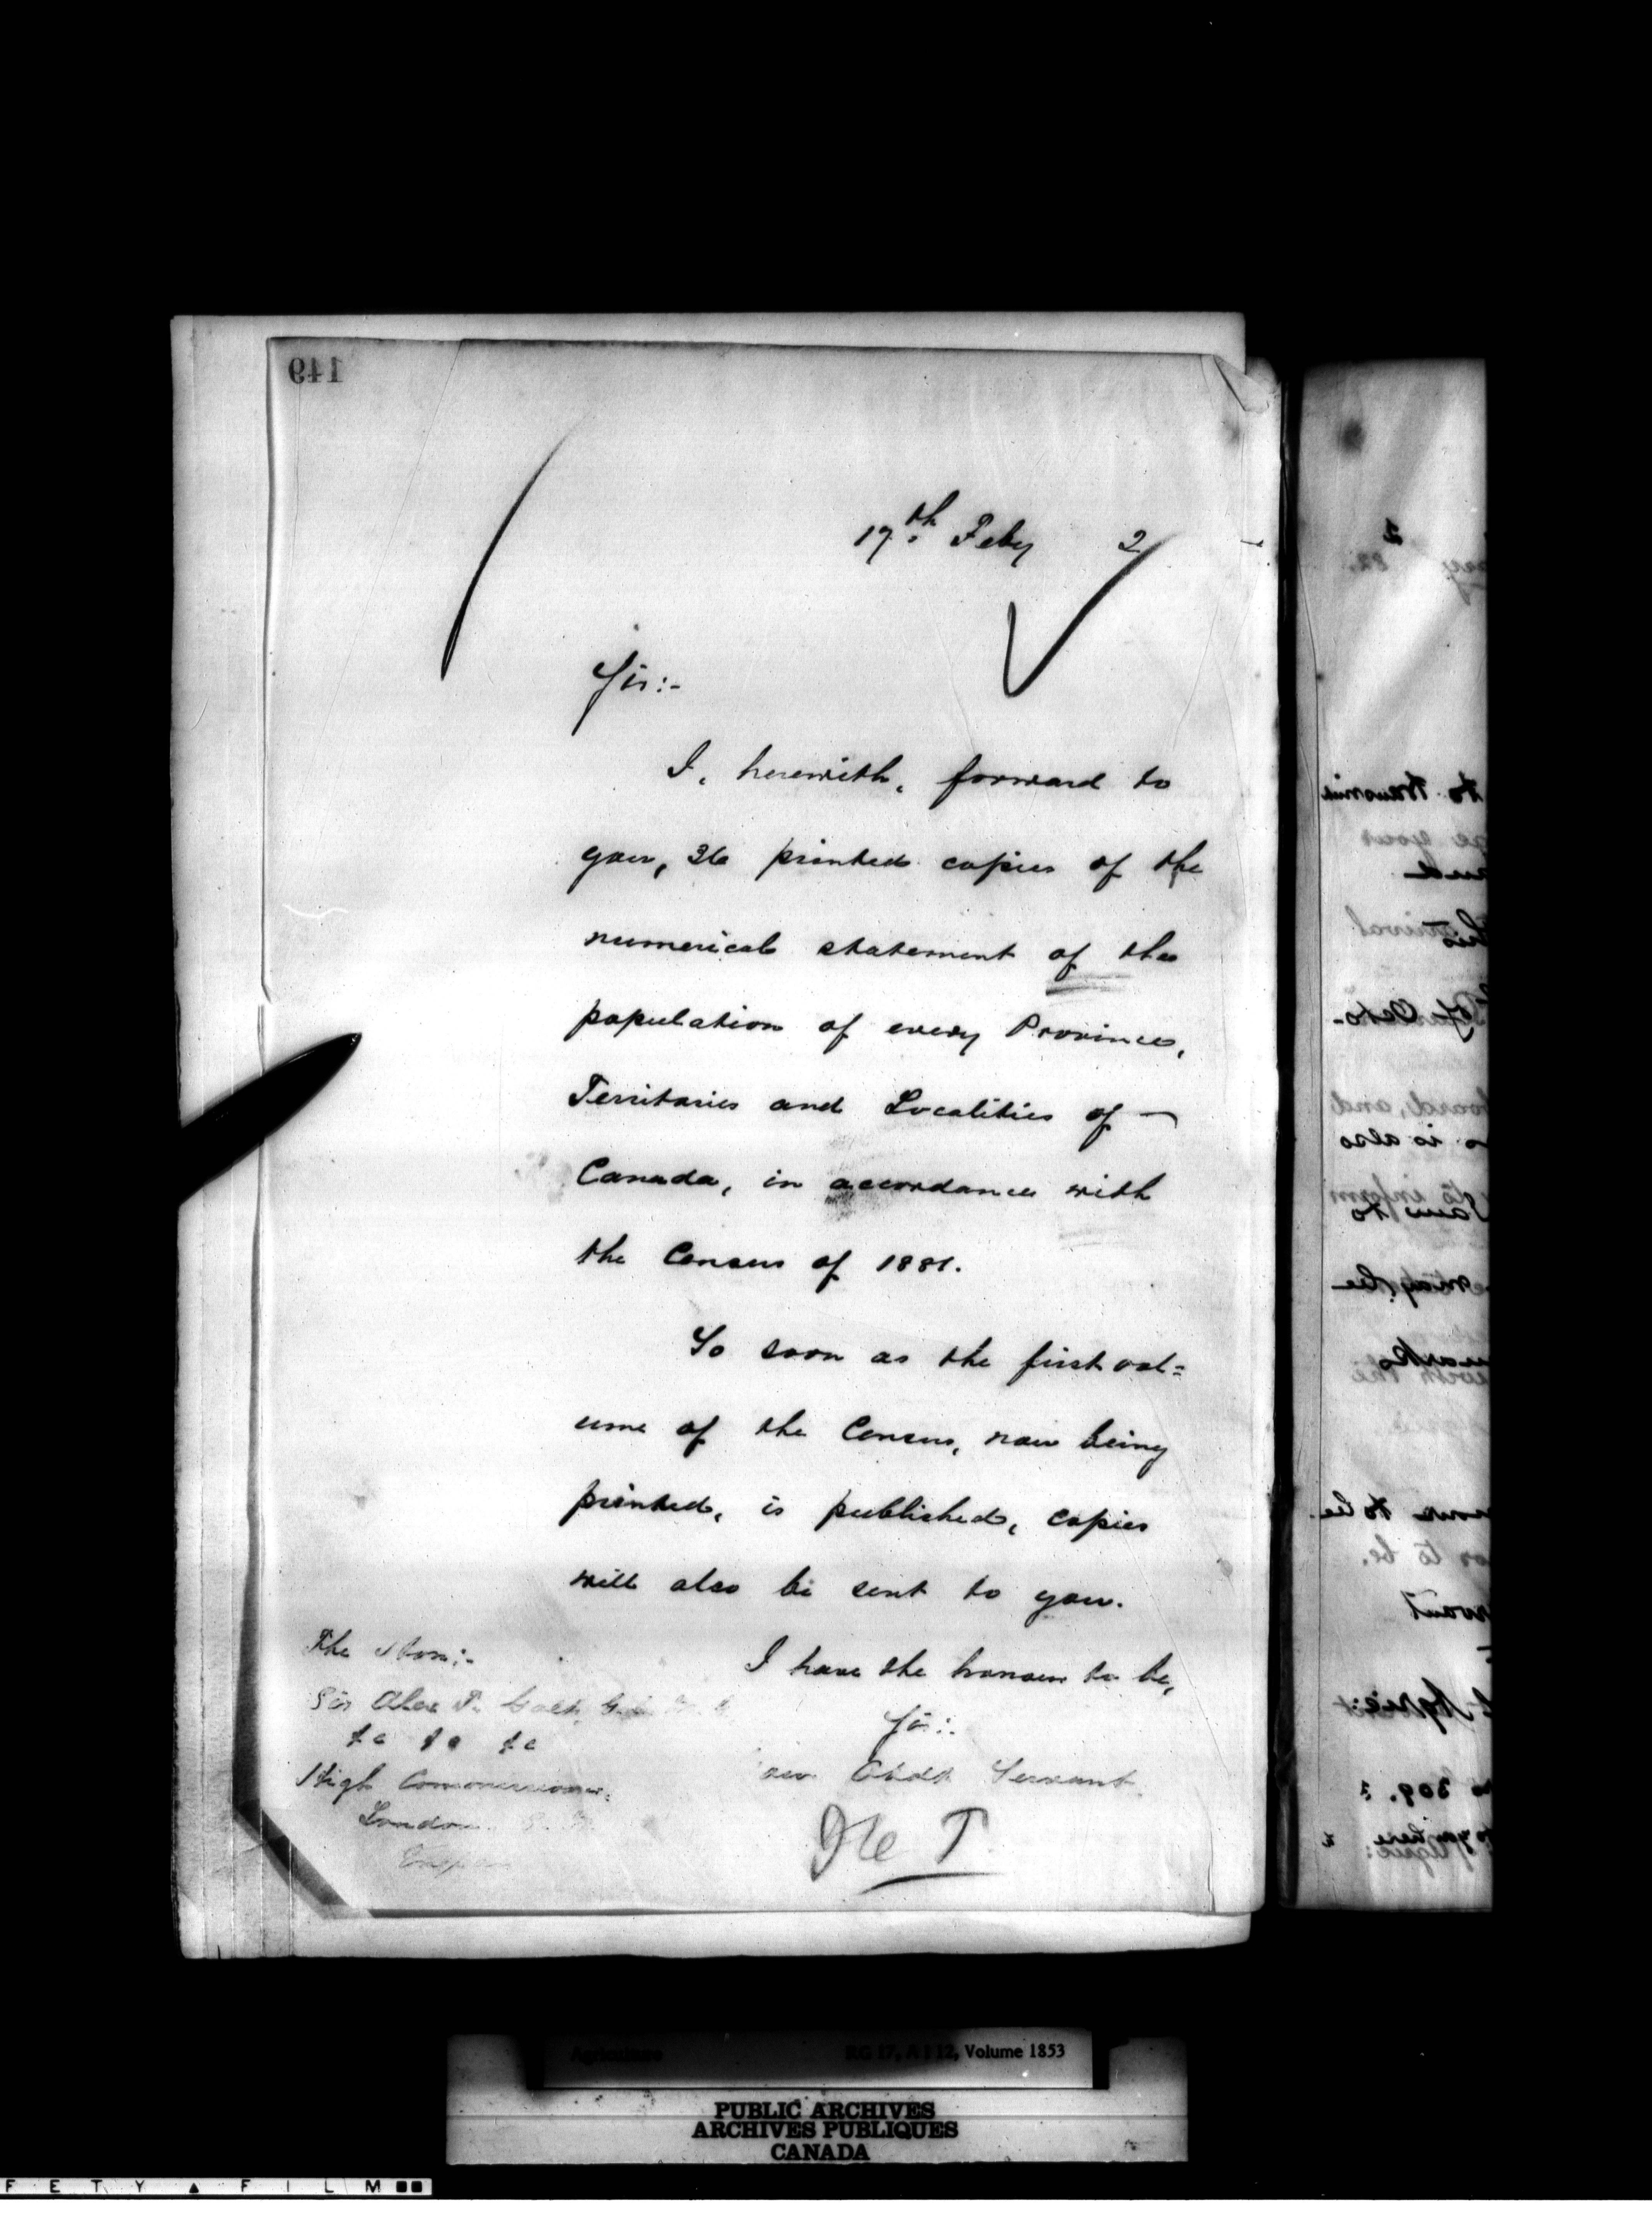 149
17th Feby 2
Sir:-
I, herewith, forward to
you, 36 printed copies of the
numerical statement of the
population of every Province,
Territories and Localities of
Canada, in accordance with
the Census of 1881.
So soon as the first vol=
ume of the Census, now being
printed, is published, copies
will also be sent to you.
I have the honour to be,
Sir:-
Obdt Servant.
The Hon:-
Sir Alex T. Galt, G.
&c &c &c
High Commissioner,
London
to transmit
your
and
arrival
of Octo-
board, and
is also
to inform
may be
marks
with the
to be
or to be.
309.
Agriculture RG 17, A I 12, Volume 1853
PUBLIC ARCHIVES
ARCHIVES PUBLIQUES
CANADA
FETY ▲ FILM